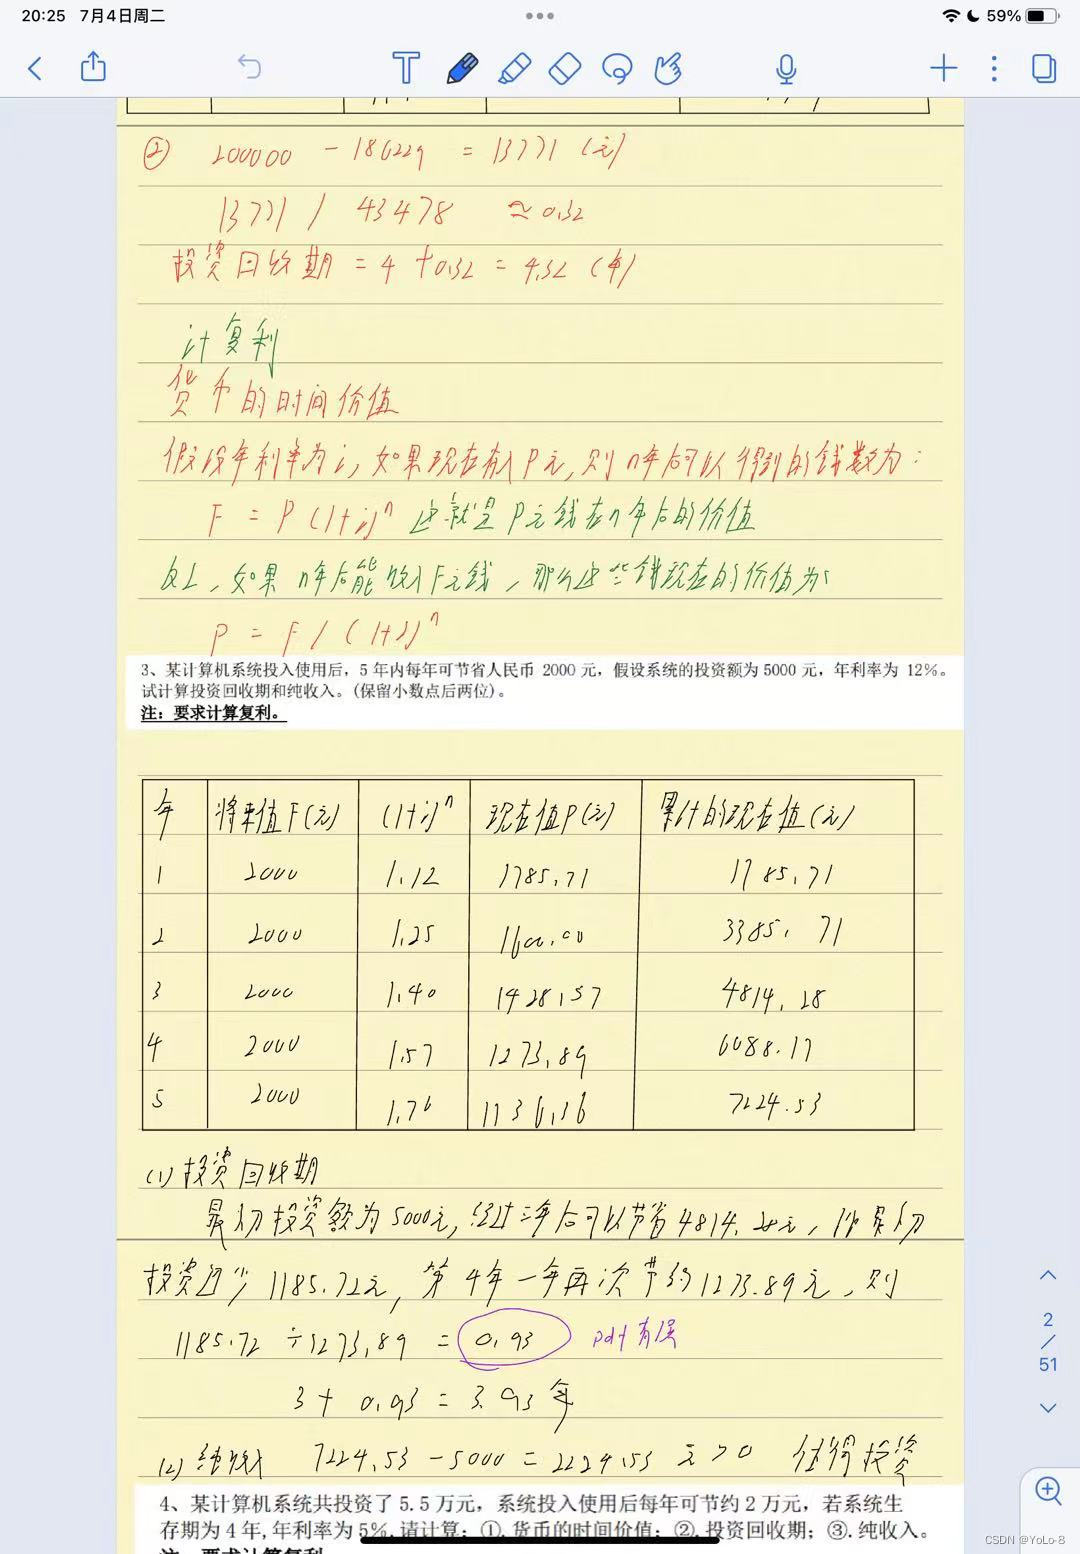 20:25 7月4日周二
59%
② 200000 - 186229 = 13771 (元)
13771 / 43478 ≈ 0.32
投资回收期 = 4 + 0.32 = 4.32 (年)
计复利
货币的时间价值
假设年利率为i, 如果现在存入P元, 则n年后可以得到的钱数为:
F = P (1+i)^n 这就是P元钱在n年后的价值
反之, 如果n年后能收入F元钱, 那么这些钱现在的价值为:
P = F / (1+i)^n
3、某计算机系统投入使用后，5 年内每年可节省人民币 2000 元，假设系统的投资额为 5000 元，年利率为 12%。
试计算投资回收期和纯收入。(保留小数点后两位)。
注：要求计算复利。
年 将来值F(元) (1+i)^n 现在值P(元) 累计的现在值(元)
1 2000 1.12 1785.71 1785.71
2 2000 1.25 1600.00 3385.71
3 2000 1.40 1428.57 4814.28
4 2000 1.57 1273.89 6088.17
5 2000 1.76 1136.36 7224.53
(1) 投资回收期
最初投资额为5000元, 经过三年后可以节省4814.28元, 比最初
投资还少1185.72元, 第4年一年再次节约1273.89元, 则
1185.72 ÷ 1273.89 = 0.93 pdf有误
3 + 0.93 = 3.93 年
(2) 纯收入 7224.53 - 5000 = 2224.53 元 > 0 值得投资
4、某计算机系统共投资了 5.5 万元，系统投入使用后每年可节约 2 万元，若系统生
存期为 4 年, 年利率为 5%, 请计算：①. 货币的时间价值；②. 投资回收期；③. 纯收入。
注：要求计算复利
2
/
51
CSDN @YoLo-8